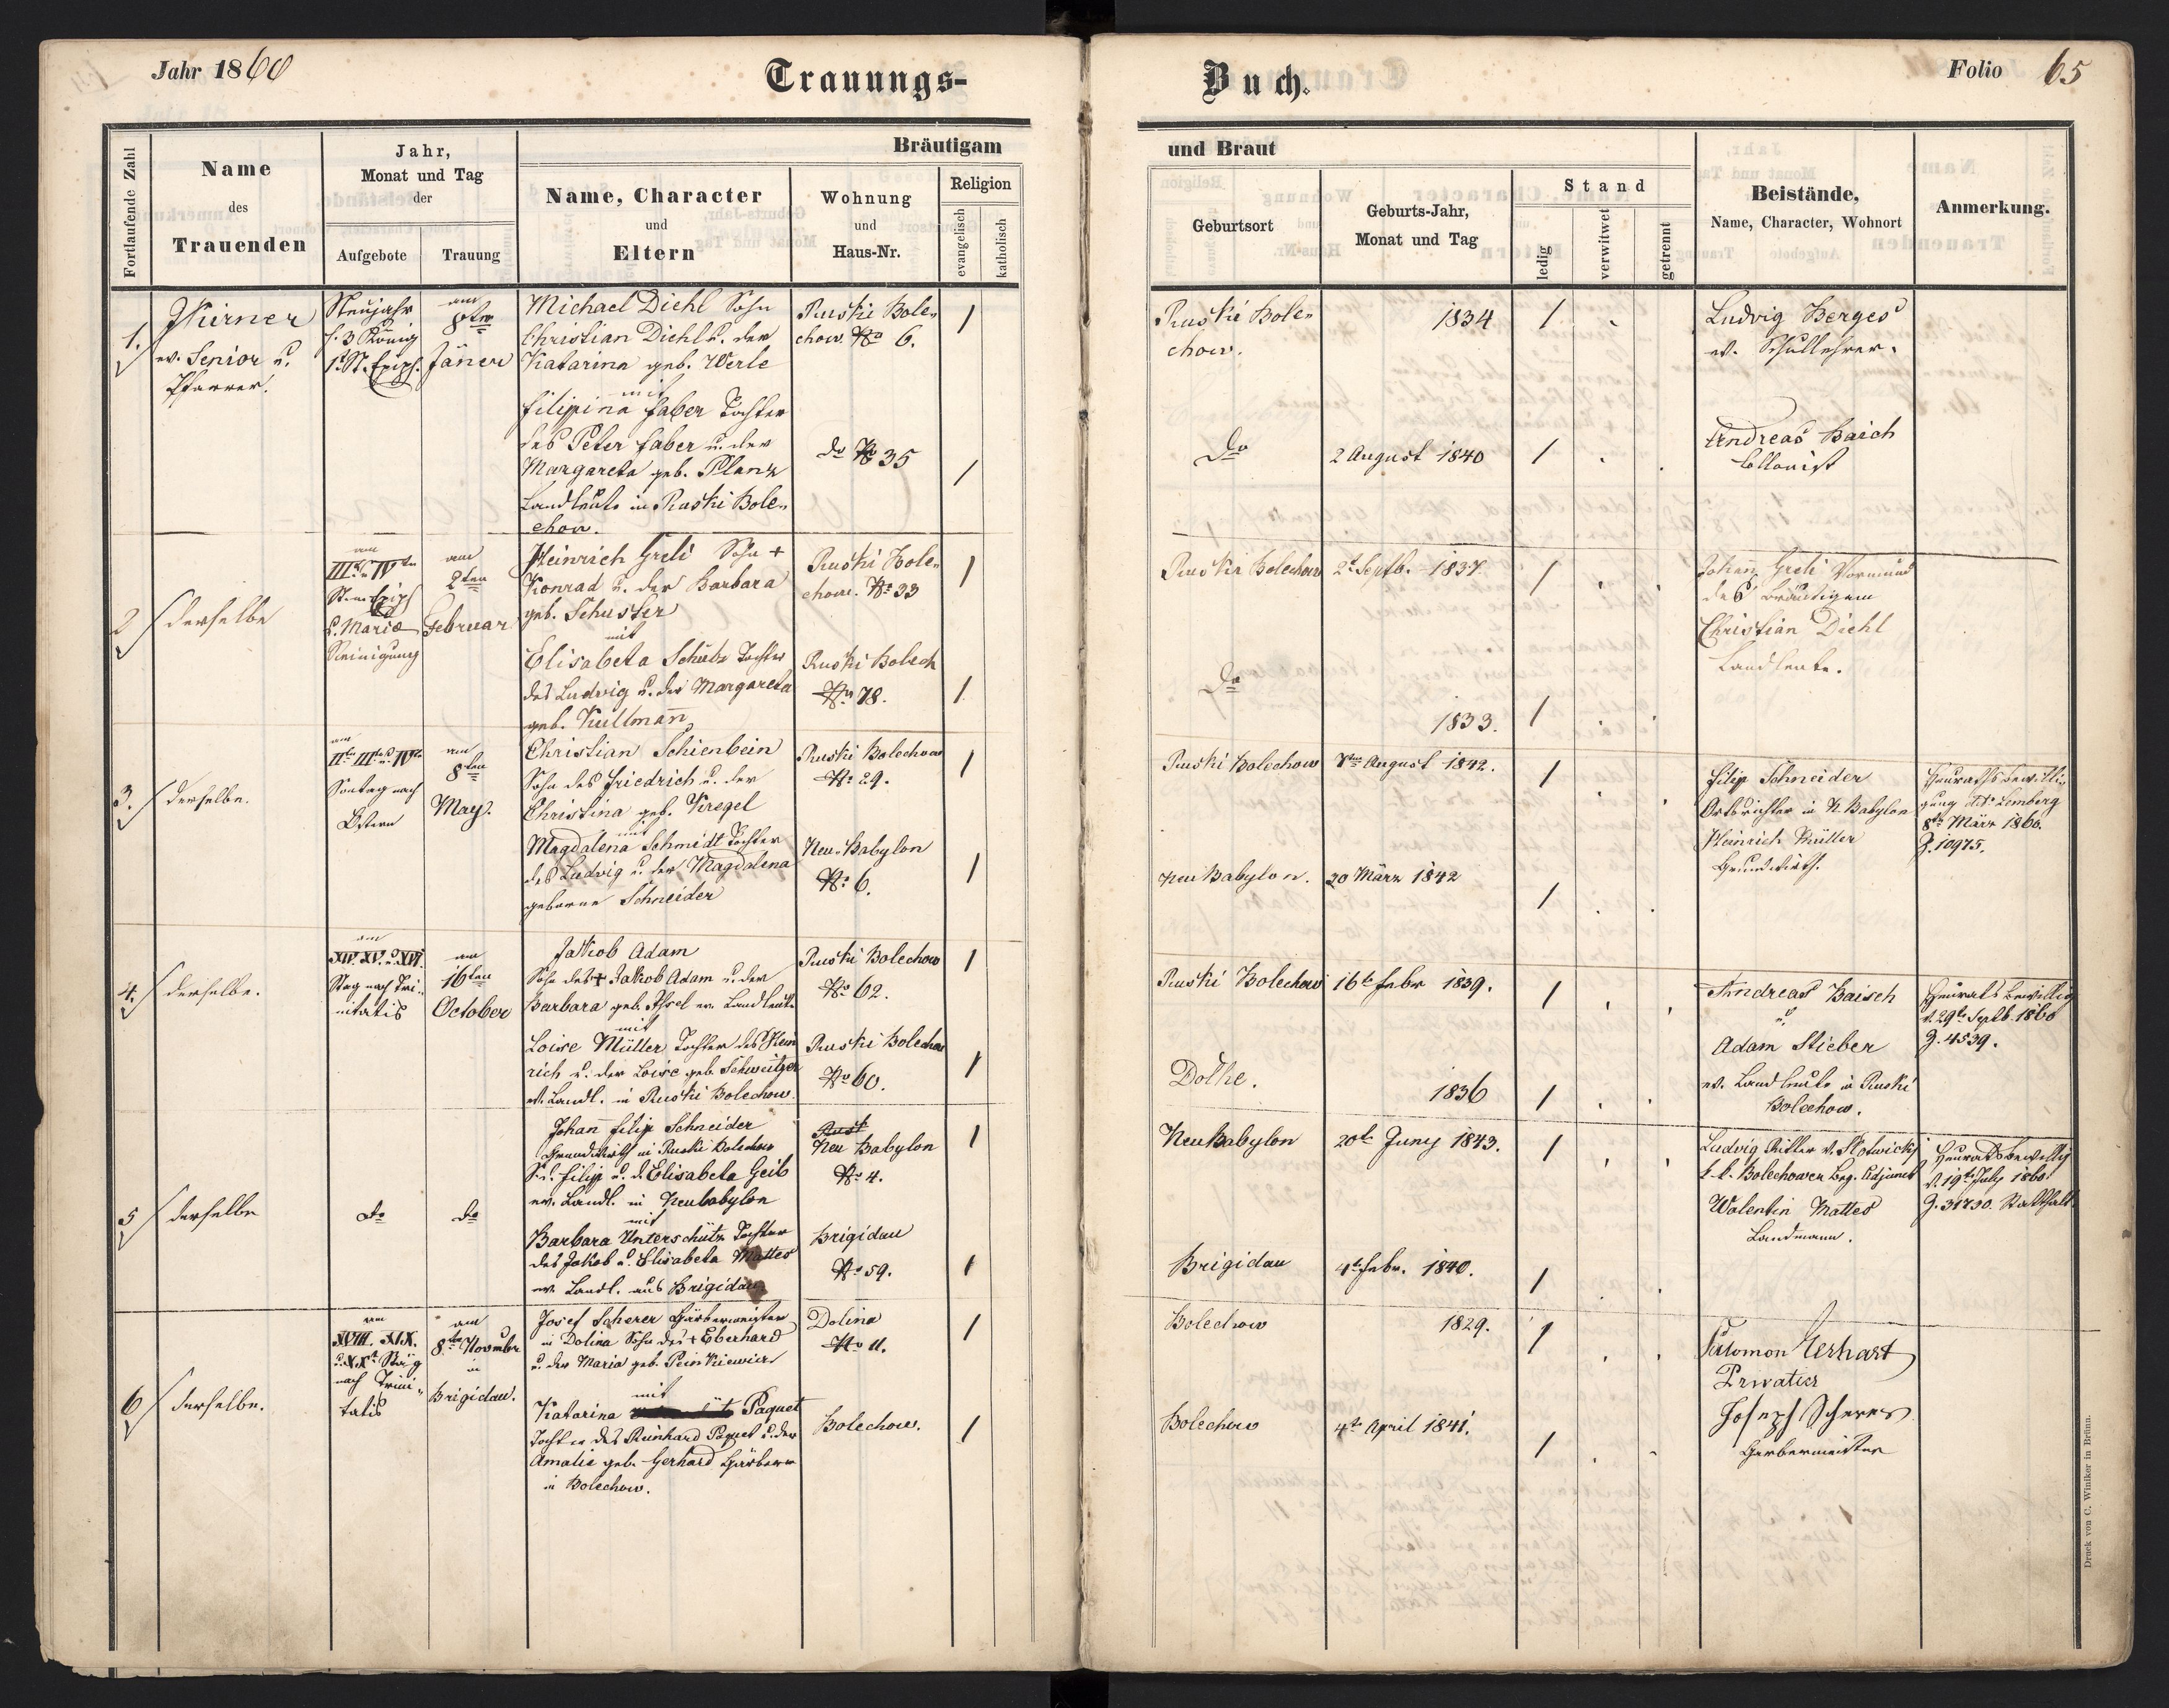 Jahr 1860
Trauungs-
Buch.
Folio 65
Fortlaufende Zahl
Name
des
Trauenden
Jahr,
Monat und Tag
der
Aufgebote
Trauung
Bräutigam
und Braut
Name, Character
und
Eltern
Wohnung
und
Haus-Nr.
Religion
evangelisch
katholisch
Geburtsort
Geburts-Jahr,
Monat und Tag
Stand
ledig
verwitwet
getrennt
Beistände,
Name, Character, Wohnort
Anmerkung.
1.
ev. Senior u.
Pfarrer.
Neujahr
f. 3 König
1. St. Epiph.
am
8ten
Jäner
Michael Diehl Sohn
Christian Diehl u. der
Katarina geb. Werle
mit
Filipina Faber Tochter
des Peter Faber u. der
Margareta geb. Planz
Landleute in Ruski Bole-
chow.
Ruski Bole-
chow No 6.
do No 35
/
/
Ruski Bole-
chow.
1834
/
Do
2 August 1840
/
Ludvig Berges
ev. Schullehrer.
Andreas Baisch
Collonist
2
derselbe
am
III u. IVten
St. n. Epiph
u. Mariä
Reinigung
am
2ten
Februar
Heinrich Greli Sohn +
Konrad u. der Barbara
geb. Schuster
mit
Elisabeta Schütz Tochter
des Ludvig u. der Margareta
geb. Kullmann
Ruski Bole-
chow. No 33
Ruski Bolech
No 78.
/
/
Ruski Bolechow
2t Septb. 1837.
/
Do
1833.
/
Johan Greli Vormund
des Bräutigam
Christian Diehl
Landleute.
3.
derselbe.
am
IIten IIIten u. IVten
Sontag nach
Ostern
am
8ten
May.
Christian Schienbein
Sohn des Friedrich u. der
Christina geb. Kregel
mit
Magdalena Schmidt Tochter
des Ludvig u. der Magdalena
geborne Schneider
Ruski Bolechow
No 29.
Neu-Babylon
No 6.
/
/
Ruski Bolechow
August 1842.
/
Neu Babylon.
30 März 1842
/
Filip Schneider
Ortsrichter in N. Babylon
Heinrich Müller
Grundwirth.
Heuraths bewilli-
gung dto Lemberg
8ten März 1860.
Z. 10975.
4.
derselbe.
am
XIV. XV. u. XVI.
Stag nach Tri-
nitatis
am
16ten
October
Jakob Adam
Sohn des + Jakob Adam u. der
Barbara geb. ev. Landleute
mit
Loise Müller Tochter des Hein
rich u. der Loise geb. Schweitzer
ev. Landl. in Ruski Bolechow.
Ruski Bolechow
No 62.
Ruski Bolechow
No 60.
/
/
Ruski Bolechow
16t Febr 1839.
/
Dolhe.
1836
/
Andreas Baisch
u.
Adam Stieber
ev. Landleute in Ruski
Bolechow.
Heurats bewillig
v. 29ten Septb. 1860
Z. 4539.
5
derselbe
do
do
Johan Filip Schneider
Grundwirth in Ruski Bolechow
S. d. Filip u. d. Elisabeta Geib
ev. Landl. in Neubabylon
mit
Barbara Unterschütz Tochter
des Jakob u. Elisabeta Mattes
ev. Landl. aus Brigidau
Rusk
Neu Babylon
No 4.
Brigidau
No 59.
/
/
Neu Babylon
20t Juny 1843.
/
Brigidau
4t Febr. 1840.
/
Ludvig Ritter v.
k. k. Bolechower Bez. Adjunct
Walentin Mattes
Landmann.
Heurats bewillig
v. 19ten July 1860
6
derselbe.
am
XVIII. XIX.
u. XXt Stag
nach Trini-
tatis
am
8ten Novmber
in
Brigidau.
Josef Scherer Gärbermeister
in Dolina Sohn des + Eberhard
u. der Maria geb.
mit
Katarina Paquet
Tochter des Reinhard Paquet u. der
Amalie geb. Gerhard Gärberer
in Bolechow.
Dolina
No 11.
Bolechow.
/
/
Bolechow
1829.
/
Bolechow
4t April 1841.
/
Salomon Gerhart
Privatier
Joseph Scherer
Gerbermeister
Druck von C. Winiker in Brünn.